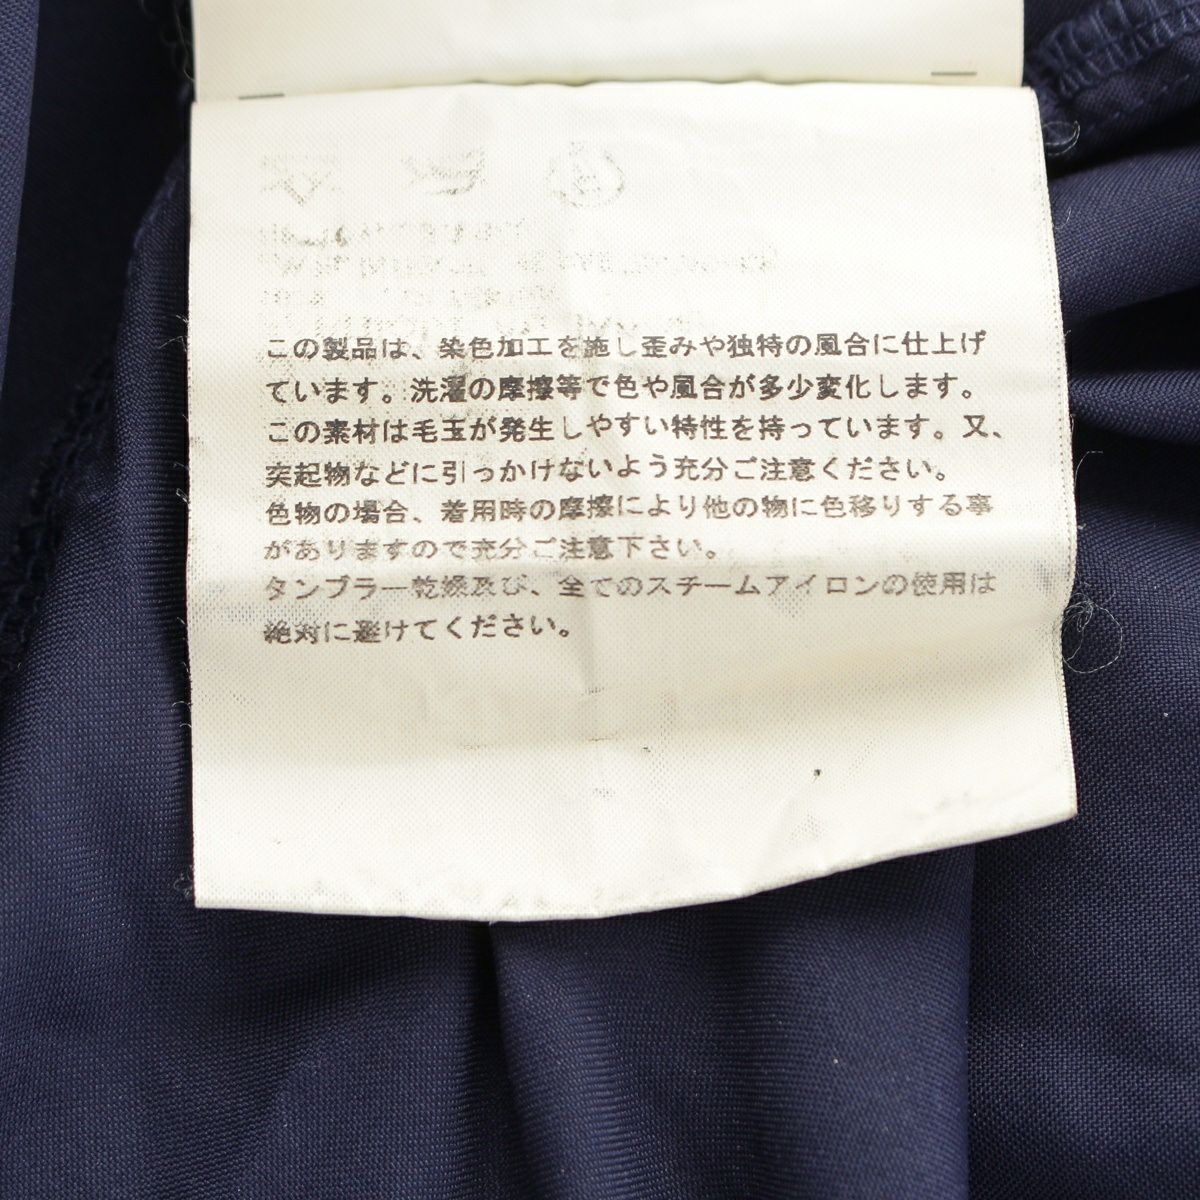 この製品は、染色加工を施し歪みや独特の風合に仕上げ
ています。洗濯の摩擦等で色や風合が多少変化します。
この素材は毛玉が発生しやすい特性を持っています。又、
突起物などに引っかけないよう充分ご注意ください。
色物の場合、着用時の摩擦により他の物に色移りする事
がありますので充分ご注意下さい。
タンブラー乾燥及び、全てのスチームアイロンの使用は
絶対に避けてください。